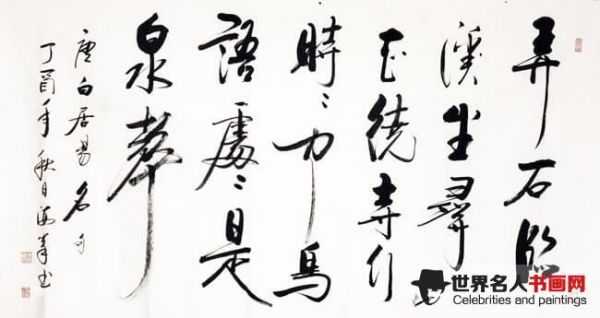 弄石臨
溪坐尋
花繞寺行
時〻聞鳥
語處〻是
泉聲
唐白居易名句
丁酉年秋日書
世界名人书画网
Celebrities and paintings